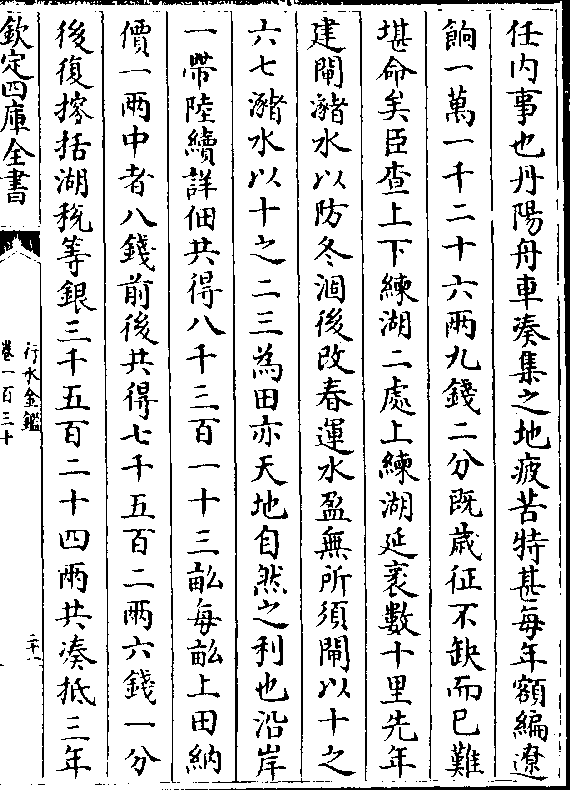 任内事也丹陽舟車湊集之地疲苦特甚每年額編遼
餉一萬一千二十六兩九錢二分既歲征不缺而已難
堪命矣臣查上下練湖二處上練湖延袤數十里先年
建閘瀦水以防冬涸後改春運水盈無所須閘以十之
六七瀦水以十之二三為田亦天地自然之利也沿岸
一帶陸續詳佃共得八千三百一十三畝每畝上田納
價一兩中者八錢前後共得七千五百二兩六錢一分
後復搜括湖稅等銀三千五百二十四兩共湊抵三年
欽定四庫全書
行水金鑑
卷一百三十